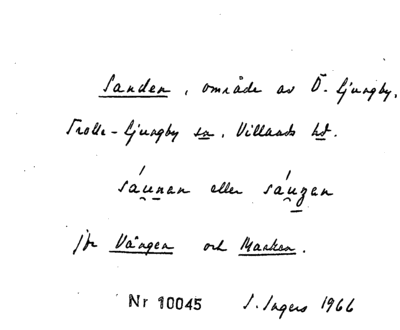 Sanden, område av Ö. Ljungby,
Trolle-Ljungby sn, Villands hd.
sáu̯nan eller sáu̯ꞃan
jfr Vången och Marken.
Nr 10045 I. Ingers 1966